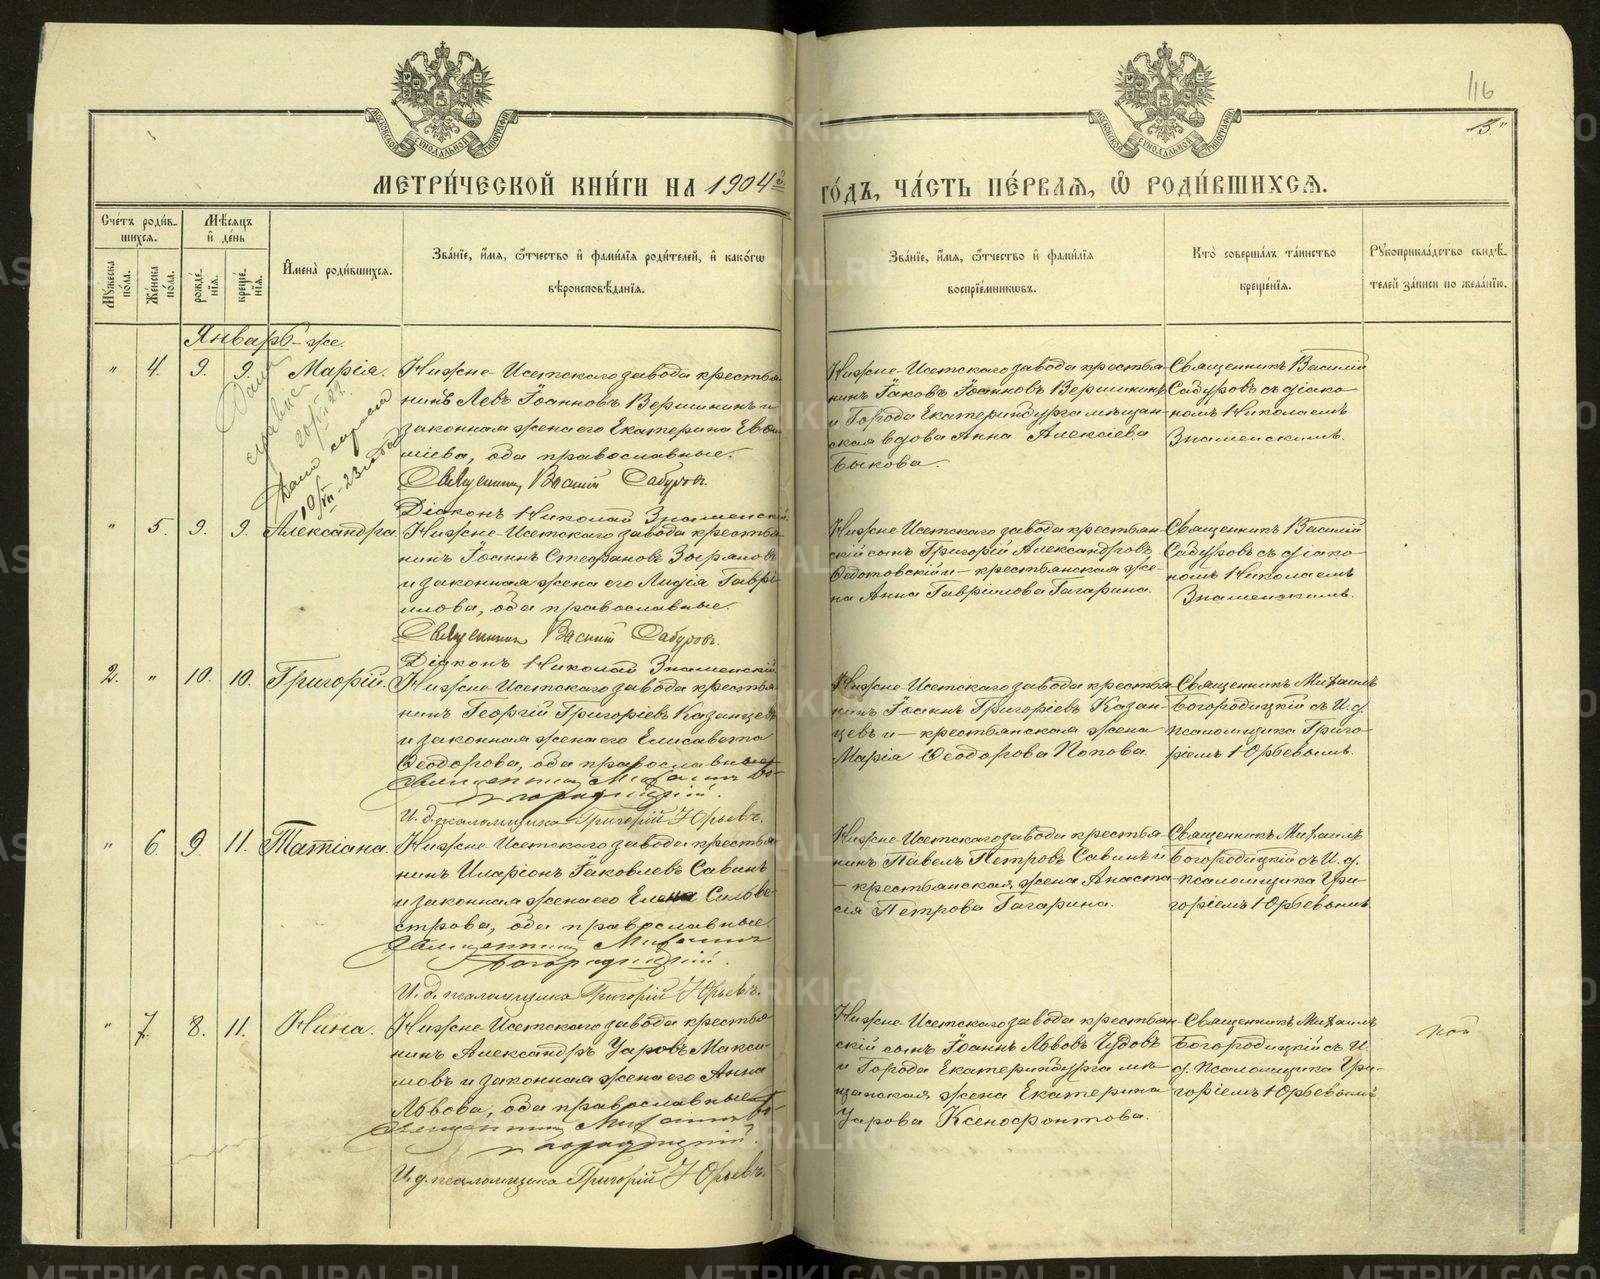 116
3
МОСКОВСКОЙ СѴНОДАЛЬНОЙ ТИПОГРАФІИ
МОСКОВСКОЙ СѴНОДАЛЬНОЙ ТИПОГРАФІИ
МЕТРИ́ЧЕСКОЙ КНИ́ГИ НА 1904й
ГО́ДЪ, ЧА́СТЬ ПЕ́РВАЯ, Ѽ РОДИ́ВШИХСЯ.
Сче́тъ роди́в-
шихся.
Мѣ́сяцъ
и҆ де́нь
Мꙋ́жеска по́ла.
Же́нска по́ла.
рожде́нїя.
креще́нїя.
И҆мена̀ роди́вшихся.
Зва́нїе, и҆́мя, ѻ҆́тчество и҆ фами́лїя роди́телей, и҆ како́гѡ
вѣроисповѣ́данїя.
Зва́нїе, и҆́мя, ѻ҆́тчество и҆ фами́лїя
воспрїе́мникѡвъ.
Кто̀ соверша́лъ та́инство
креще́нїя.
Рꙋкоприкла́дство свидѣ́-
телей за́писи по жела́нїю.
Январь-же.
" 4. 9. 9. Марія.
Нижне-Исетскаго завода крестья-
нинъ Левъ Іоанновъ Вершининъ и
законная жена его Екатерина Евѳи-
міева, оба православные.
Священникъ Василій Сабуровъ.
Діаконъ Николай Знаменскій.
Нижне-Исетскаго завода крестья-
нинъ Іаковъ Іоанновъ Вершининъ
и Города Екатеринбурга мѣщан-
ская вдова Анна Алексіева
Быкова.
Священникъ Василій
Сабуровъ съ діако-
номъ Николаемъ
Знаменскимъ.
Дана справка
" 5. 9. 9. Александра.
Нижне-Исетскаго завода крестья-
нинъ Іоаннъ Стефановъ Зыряновъ
и законная жена его Лидія Гаврі-
илова, оба православные.
Священникъ Василій Сабуровъ.
Діаконъ Николай Знаменскій
Нижне-Исетскаго завода крестьян-
скій сынъ Григорій Александровъ
Ѳедотовскій и - крестьянская же-
на Анна Гавріилова Гагарина.
Священникъ Василій
Сабуровъ съ діако-
номъ Николаемъ
Знаменскимъ.
2. " 10. 10. Григорій.
Нижне-Исетскаго завода крестья-
нинъ Георгій Григоріевъ Казанцевъ
и законная жена его Елисавета
Ѳеодорова, оба православные
Священникъ Михаилъ Бо-
городицкій.
И. д. псаломщика Григорій Юрьевъ.
Нижне-Исетскаго завода крестья-
нинъ Іоаннъ Григоріевъ Казан-
цевъ и - крестьянская жена
Марія Ѳеодорова Попова
Священникъ Михаилъ
Богородицкій съ И. д.
псаломщика Григо-
ріемъ Юрьевымъ.
" 6. 9. 11. Татіана.
Нижне-Исетскаго завода крестья-
нинъ Иларіонъ Іаковлевъ Савинъ
и законная жена его Елена Сильве-
строва, оба православные
Священникъ Михаилъ
Богородицкій.
И. д. псаломщика Григорій Юрьевъ.
Нижне-Исетскаго завода крестья-
нинъ Павелъ Петровъ Савинъ и
- крестьянская жена Анаста-
сія Петрова Гагарина.
Священникъ Михаилъ
Богородицкій съ И. д.
псаломщика Гри-
горіемъ Юрьевымъ
" 7. 8. 11. Нина.
Нижне-Исетскаго завода крестья-
нинъ Александръ Уаровъ Макси-
мовъ и законная жена его Анна
Львова, оба православные
Священникъ Михаилъ Бо-
городицкій.
И. д. псаломщика Григорій Юрьевъ.
Нижне-Исетскаго завода крестьян-
скій сынъ Іоаннъ Львовъ Чудовъ
и Города Екатеринбурга мѣ-
щанская жена Екатерина
Уарова Ксенофонтова.
Священникъ Михаилъ
Богородицкій съ И.
д. псаломщика Гри-
горіемъ Юрьевымъ
METRIKI.GASO-URAL.RU